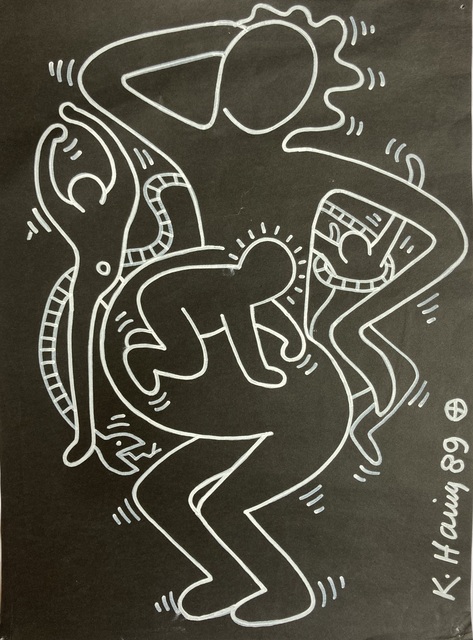 K. Haring 89 ⊕